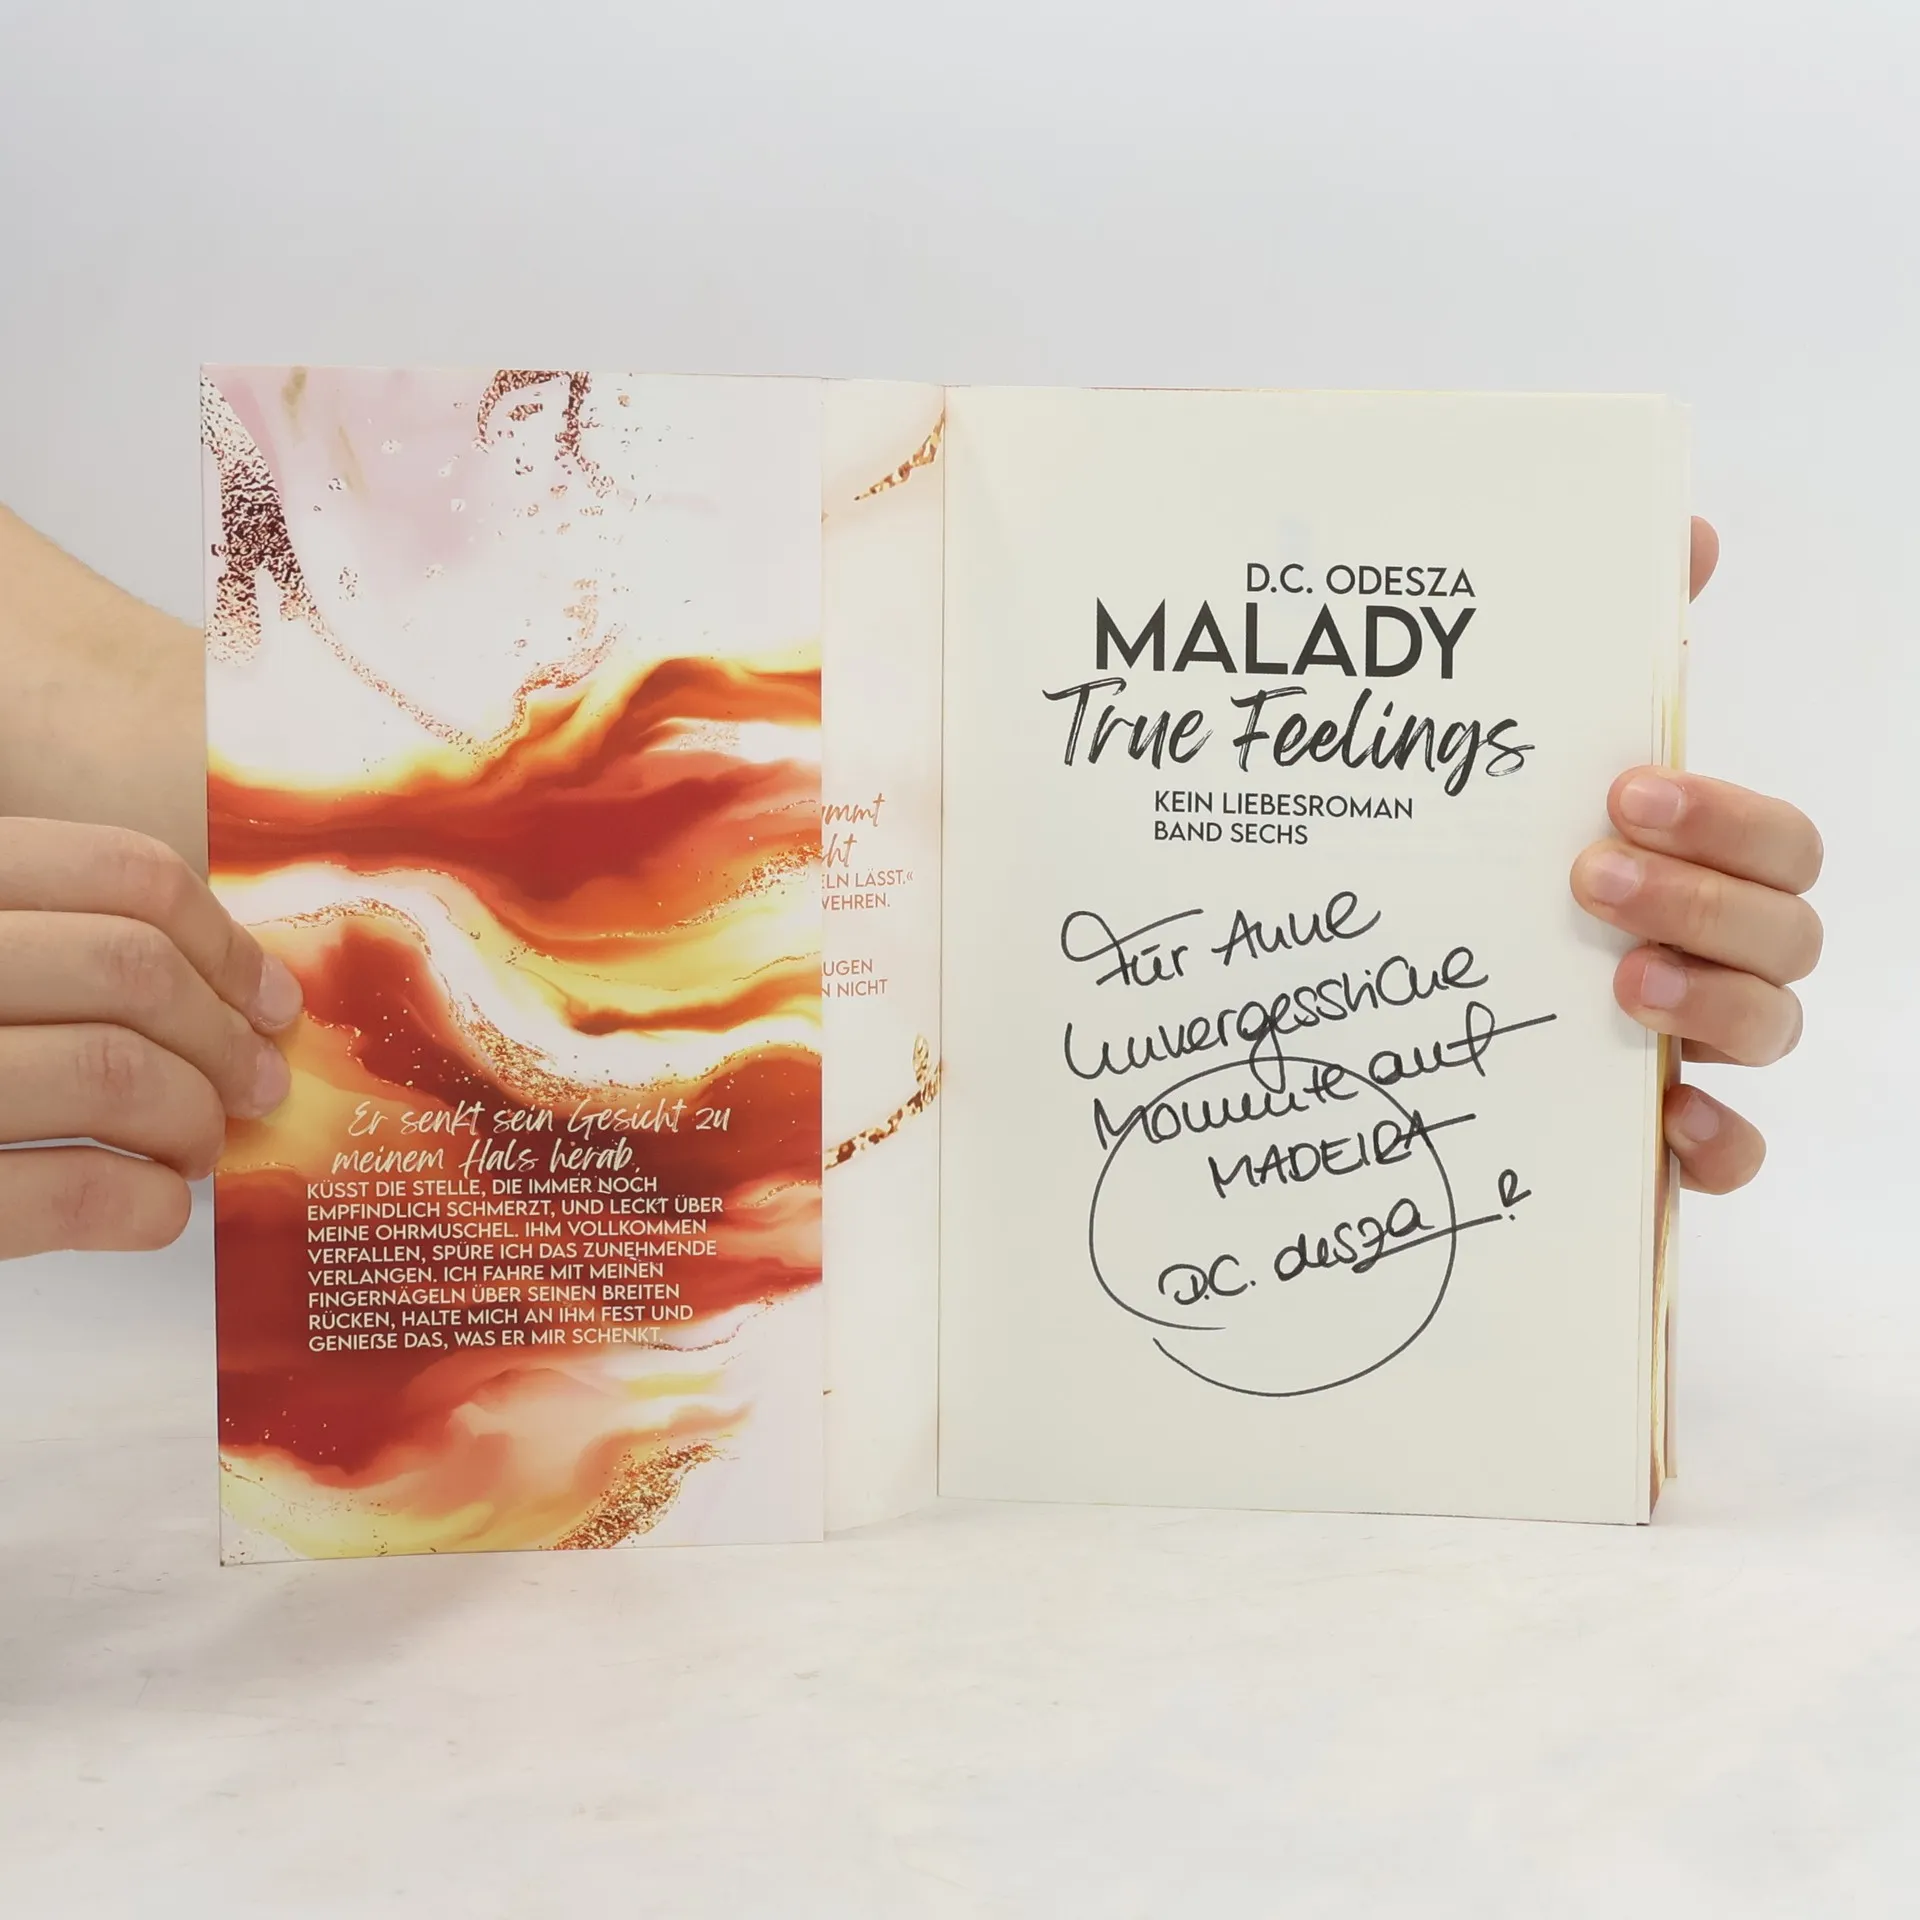 Er senkt sein Gesicht zu
meinem Hals herab,
KÜSST DIE STELLE, DIE IMMER NOCH
EMPFINDLICH SCHMERZT, UND LECKT ÜBER
MEINE OHRMUSCHEL. IHM VOLLKOMMEN
VERFALLEN, SPÜRE ICH DAS ZUNEHMENDE
VERLANGEN. ICH FAHRE MIT MEINEN
FINGERNÄGELN ÜBER SEINEN BREITEN
RÜCKEN, HALTE MICH AN IHM FEST UND
GENIEẞE DAS, WAS ER MIR SCHENKT.
LÄSST.«
NICHT
D.C. ODESZA
MALADY
True Feelings
KEIN LIEBESROMAN
BAND SECHS
Für Anne
Unvergessliche
Momente auf
MADEIRA
D.C. Odesza